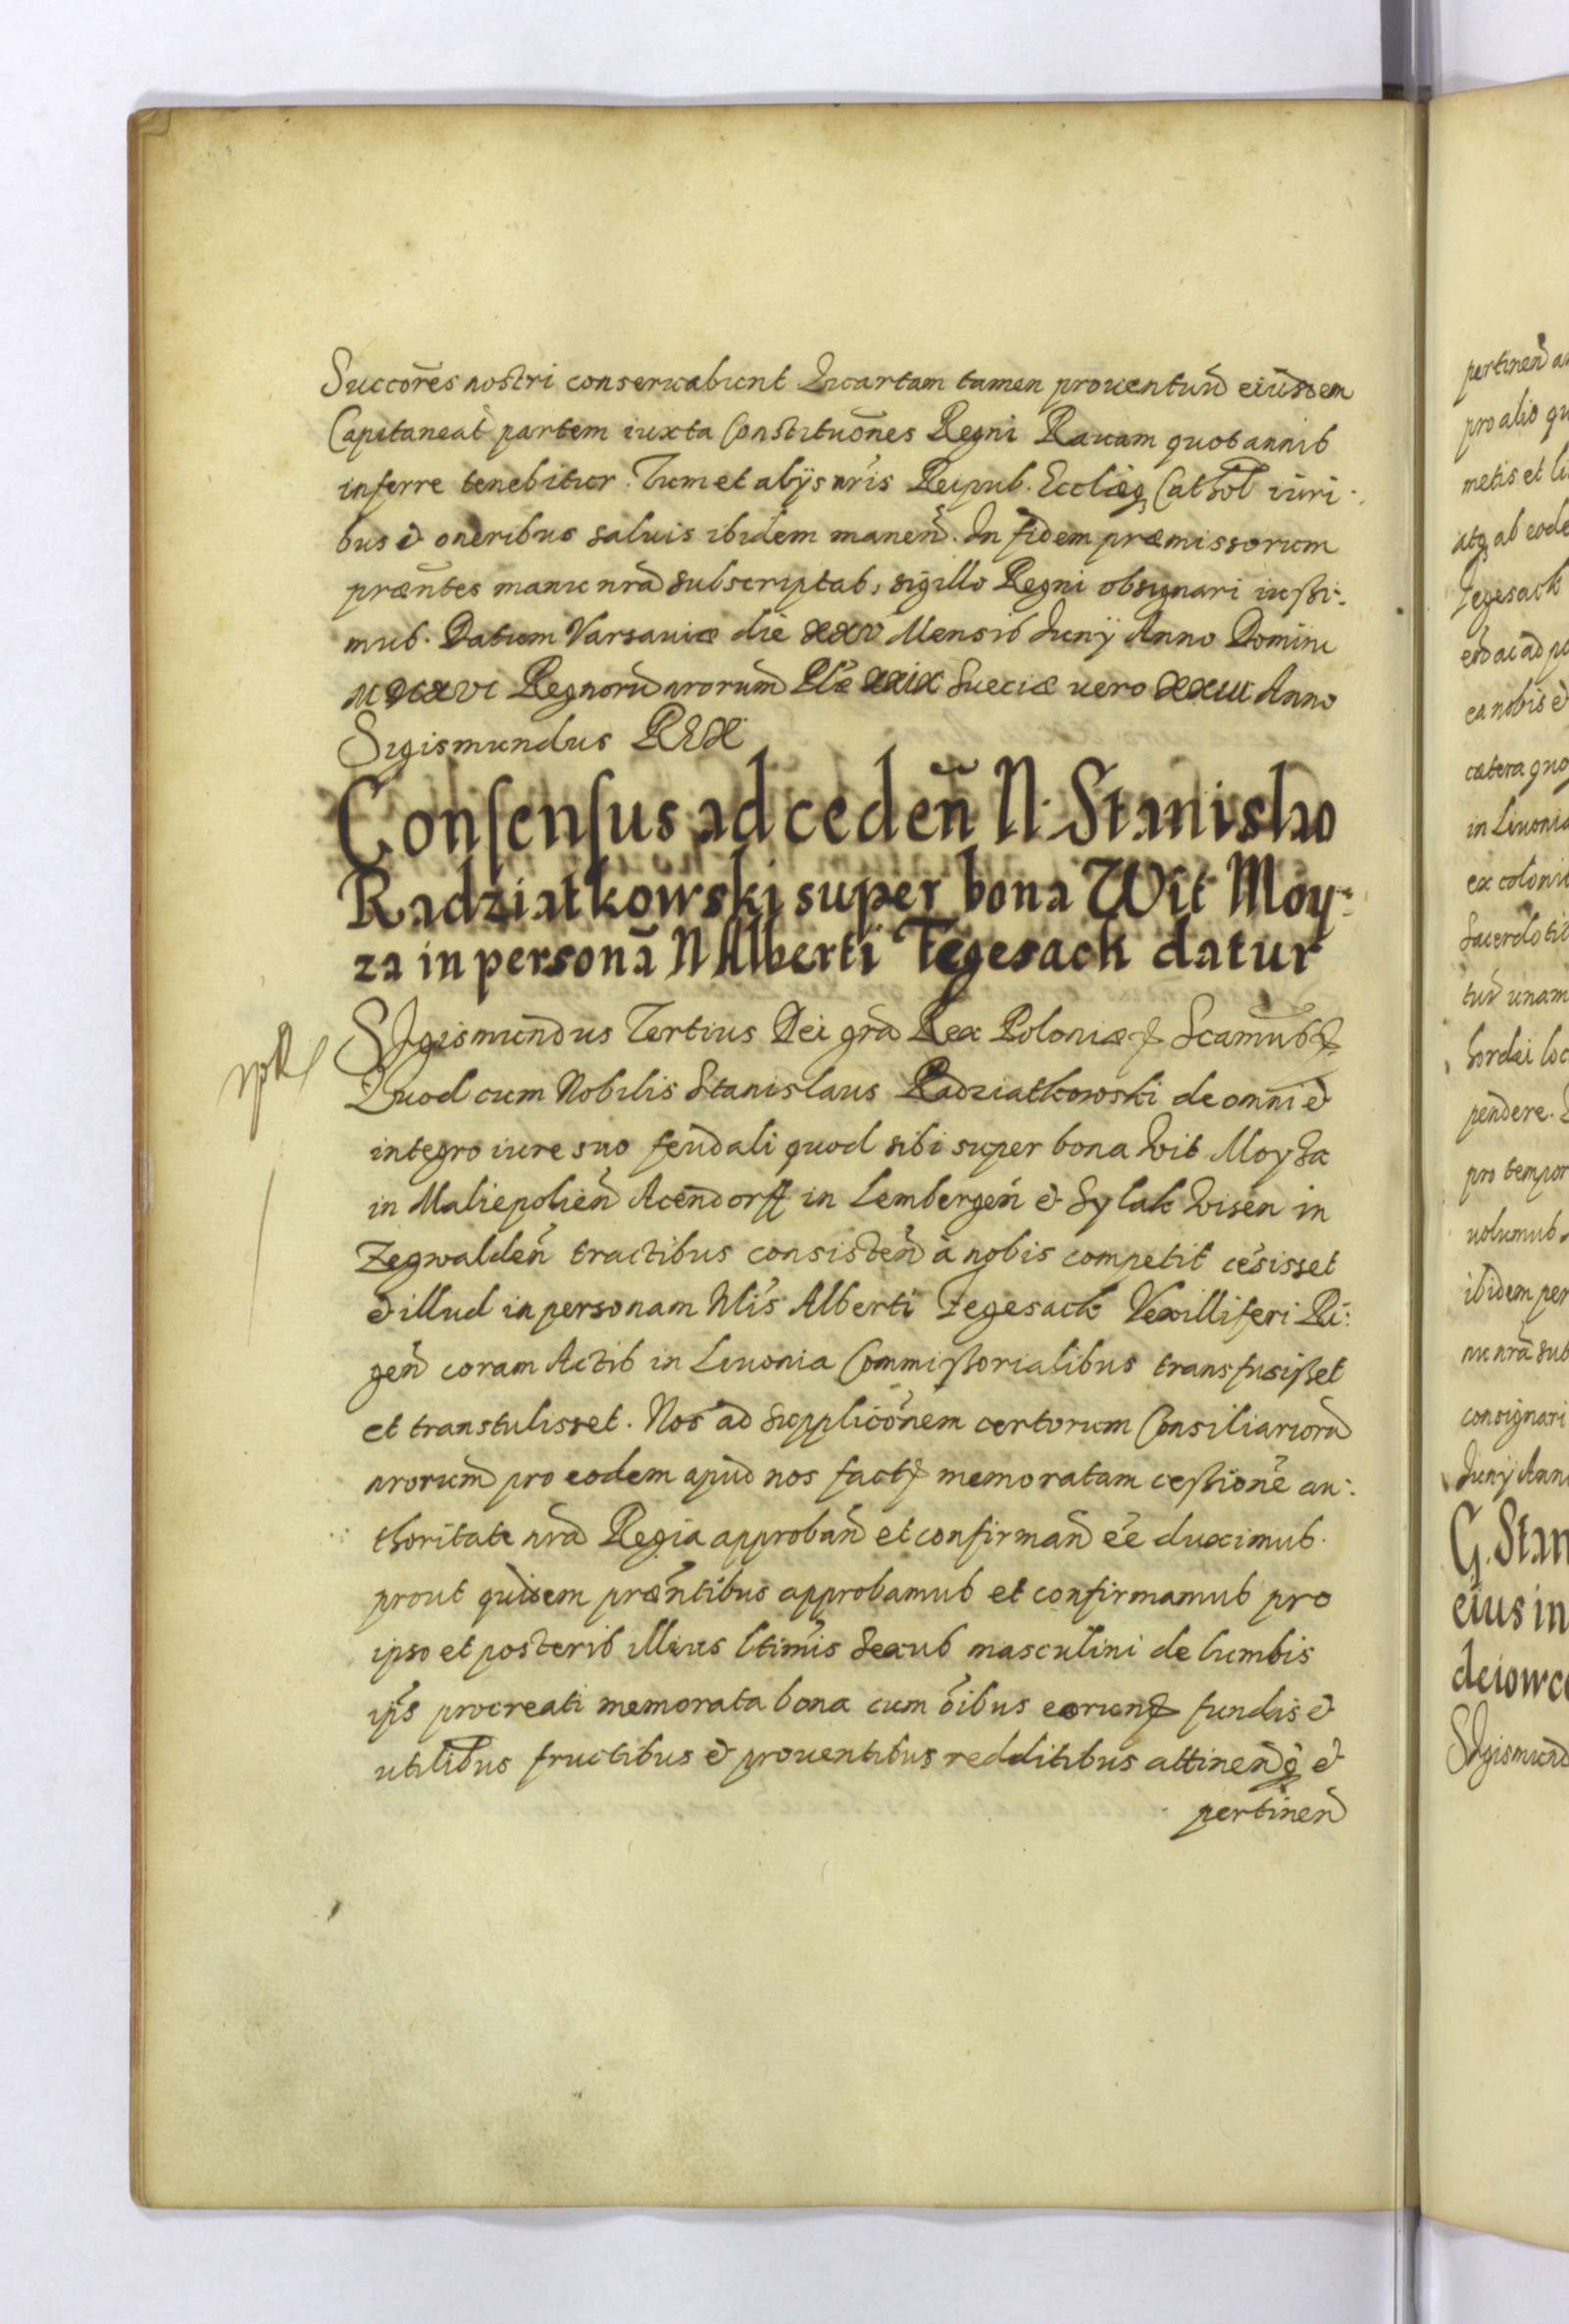 Succor̃es nostri conseruabunt Quartam tamen prouentuũ eiusdem
Capitaneat̃ partem iuxta Constituões Regni Rauam quotannis
inferre tenebitur. Tum et alijs nr̃is Reipub. Eccliæq Cathol iuri:
bus & oneribus saluis ibidem maneñ. In fidem præmissorum
præñtes manu nrã subscriptas, sigillo Regni obsignari iussi:
mus. Datum Varsauiæ die XXV Mensis Junij Anno Domini
MDCXVI Regnorũ nrorum Plæ XXIX Sueciæ uero XXIII Anno
Sigismundus REX
Consensus ad cedeñ N: Stanislao
Radziatkowski super bona Wit Moy:
za in personã N Alberti Tegesack datur
SIgismundus Tertius Dei grã Rex Poloniæ Scamus
Quod cum Nobilis Stanislaus Radziatkowski de omni &
integro iure suo feudali quod sibi super bona Wit Moyza
in Maliepolieñ Acendorff in Lembergeñ & Sylak Wisen in
Zegwaldeñ tractibus consisteñ à nobis competit cesisset
& illud in personam Nlis Alberti Zegesack Vexilliferi Ri:
geñ coram Actis in Liuonia Commissorialibus transfusisset
et transtulisset. Nos ad supplicõnem certorum Consiliariorũ
nrorum pro eodem apud nos fact memoratam cessionẽ au:
thoritate nrã Regia approbañ et confirmañ eẽ duximus.
prout quidem præñtibus approbamus et confirmamus pro
ipso et posteris illius ltimis sexus masculini de lumbis
ips̃ procreati memorata bona cum õibus eorum fundis &
utilibus fructibus & prouentibus redditibus attineñq &
pertineñ
pertineñ
pro alio
metis et
atq ab
Zegesack
ea nobis &
cætera
in Liuonia
ex
unam
hordei
pendere.
pro
uolumus
ibidem
nu nrã
consignari
Junij
G. Stan
eius in